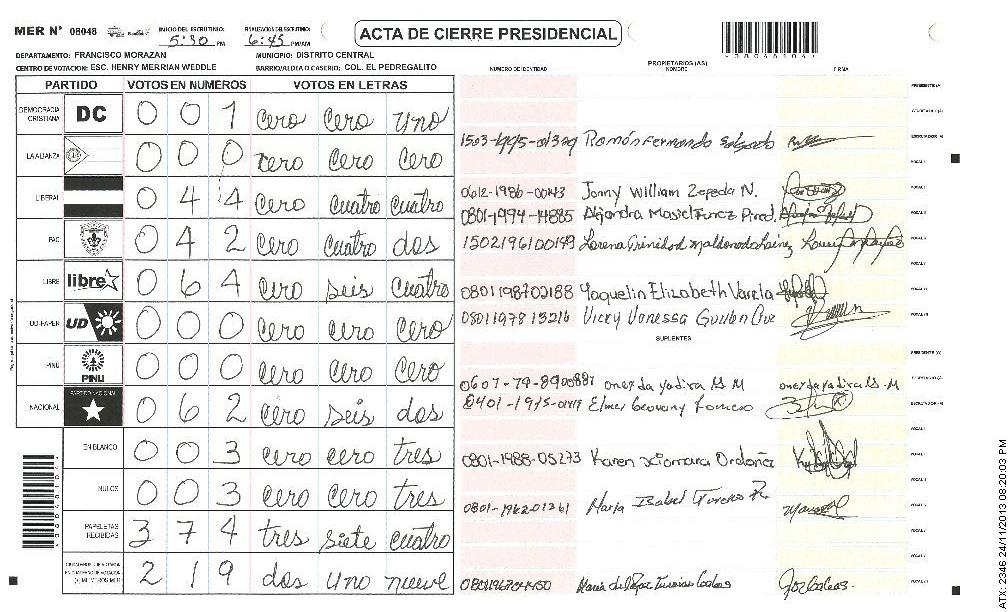 MER N° 08048 INICIO DEL ESCRUTINIO: 5:30 PM FINALIZACION DEL ESCRUTINIO: 6:45 PM/AM ACTA DE CIERRE PRESIDENCIAL
DEPARTAMENTO: FRANCISCO MORAZAN MUNICIPIO: DISTRITO CENTRAL
CENTRO DE VOTACION: ESC. HENRY MERRIAN WEDDLE BARRIO/ALDEA O CASERIO: COL. EL PEDREGALITO
NUMERO DE IDENTIDAD PROPIETARIOS (AS) NOMBRE FIRMA
PARTIDO VOTOS EN NUMEROS VOTOS EN LETRAS
DEMOCRACIA CRISTIANA DC 0 0 1 cero cero uno
LA ALIANZA 0 0 0 cero cero cero
LIBERAL 0 4 4 cero cuatro cuatro
PAC 0 4 2 cero cuatro dos
LIBRE libre 0 6 4 cero seis cuatro
UD-FAPER UD 0 0 0 cero cero cero
PINU PINU 0 0 0 cero cero cero
NACIONAL PARTIDO NACIONAL 0 6 2 cero seis dos
EN BLANCO 0 0 3 cero cero tres
NULOS 0 0 3 cero cero tres
PAPELETAS RECIBIDAS 3 7 4 tres siete cuatro
2 1 9 dos uno nueve
Ramón Fernando Salgado
0612-1986-00143 Jonny William Zepeda N.
0801-1994-14885 Alejandra
1502196100149 Lorena Trinidad Maldonado Lainez
0801198702188 Yaquelin Elizabeth Varela
0801197813216 Vicky Vanessa Guillen Cruz
SUPLENTES
0607-79-8900887 onerda yadira M M
0401-1975- Elmer Geovany Romero
0801-1988-05273 Karen Xiomara Ordoñez
0801-1962-01361 Maria Isabel
Maria del
ATX: 2346 24/11/2013 08:20:03 PM